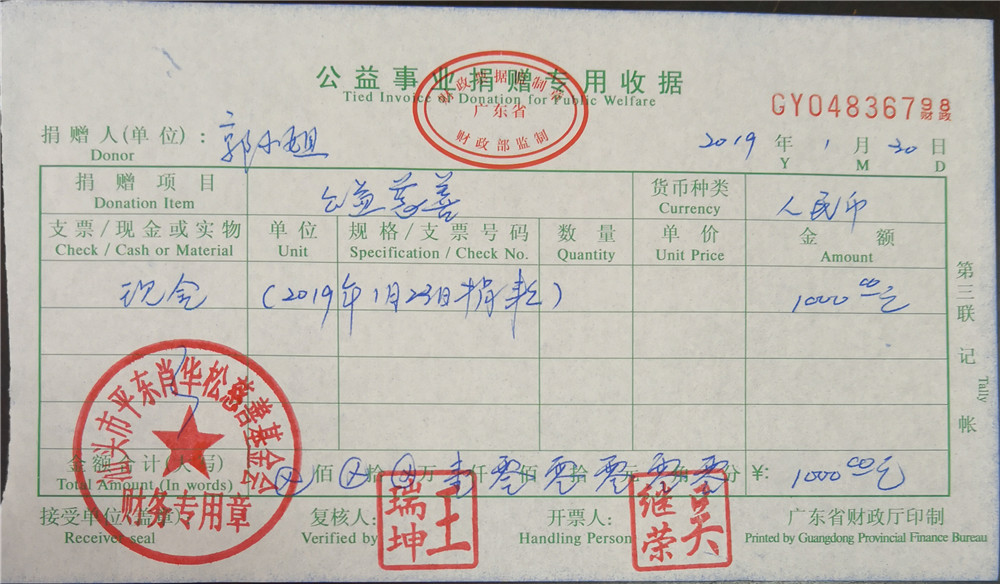 公益事业捐赠专用收据
Tied Invoice of Donation for Public Welfare
财政票据监制章
广东省
财政部监制
GY04836798
财政
捐赠人(单位): 郭小姐
Donor
2019 年 1 月 30 日
Y M D
捐赠项目 公益慈善 货币种类 人民币
Donation Item Currency
支票/现金或实物 单位 规格/支票号码 数量 单价 金额
Check / Cash or Material Unit Specification / Check No. Quantity Unit Price Amount
现金 (2019年1月23日捐款) 1000.00元
第三联 记帐
Tally
金额合计(大写) 佰 拾 万 壹仟 零佰 零拾 零元 零角 零分 ¥: 1000.00元
Total Amount (In words)
汕头市平东肖华松慈善基金会
财务专用章
接受单位(盖章) 复核人: 开票人: 广东省财政厅印制
Receiver seal Verified by Handling Person Printed by Guangdong Provincial Finance Bureau
王瑞坤
吴继荣